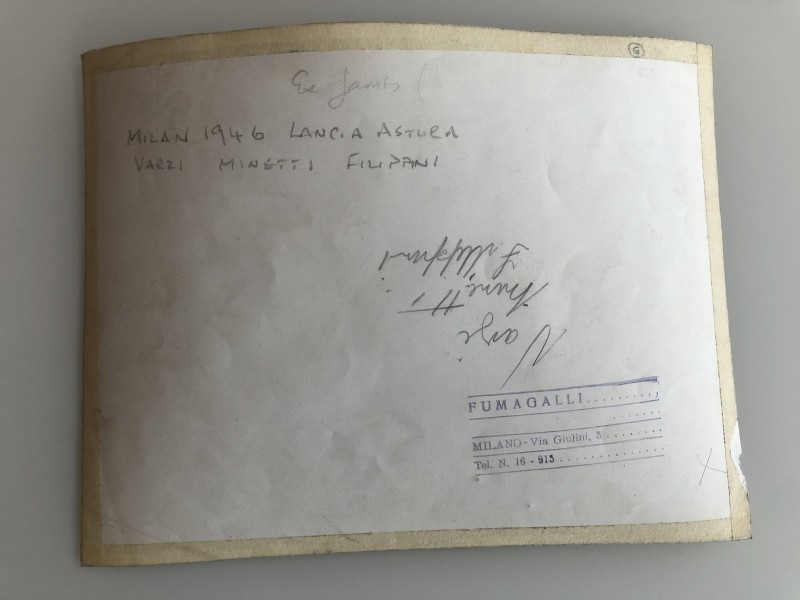 G
Ex
MILAN 1946 LANCIA ASTURA
VARZI MINETTI FILIPPANI
Varzi
Minetti
FUMAGALLI..........
.......
MILANO - Via Giulini, 5........
Tel. N. 16 - 915..............
X